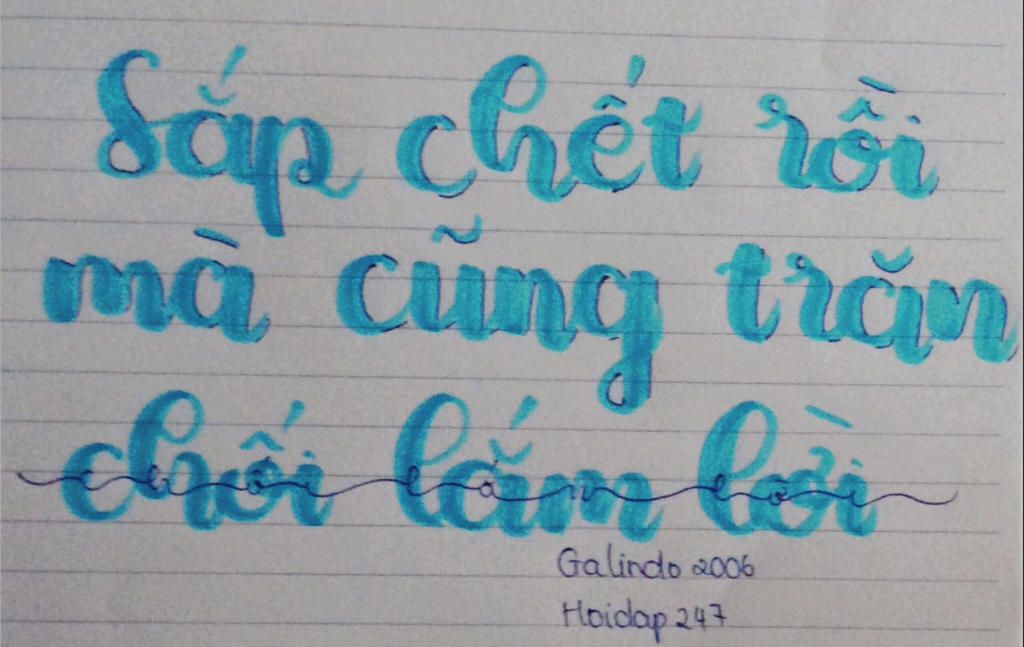 Sắp chết rồi
mà cũng trăn
chối lắm lời
Galindo 2006
Hoidap 247